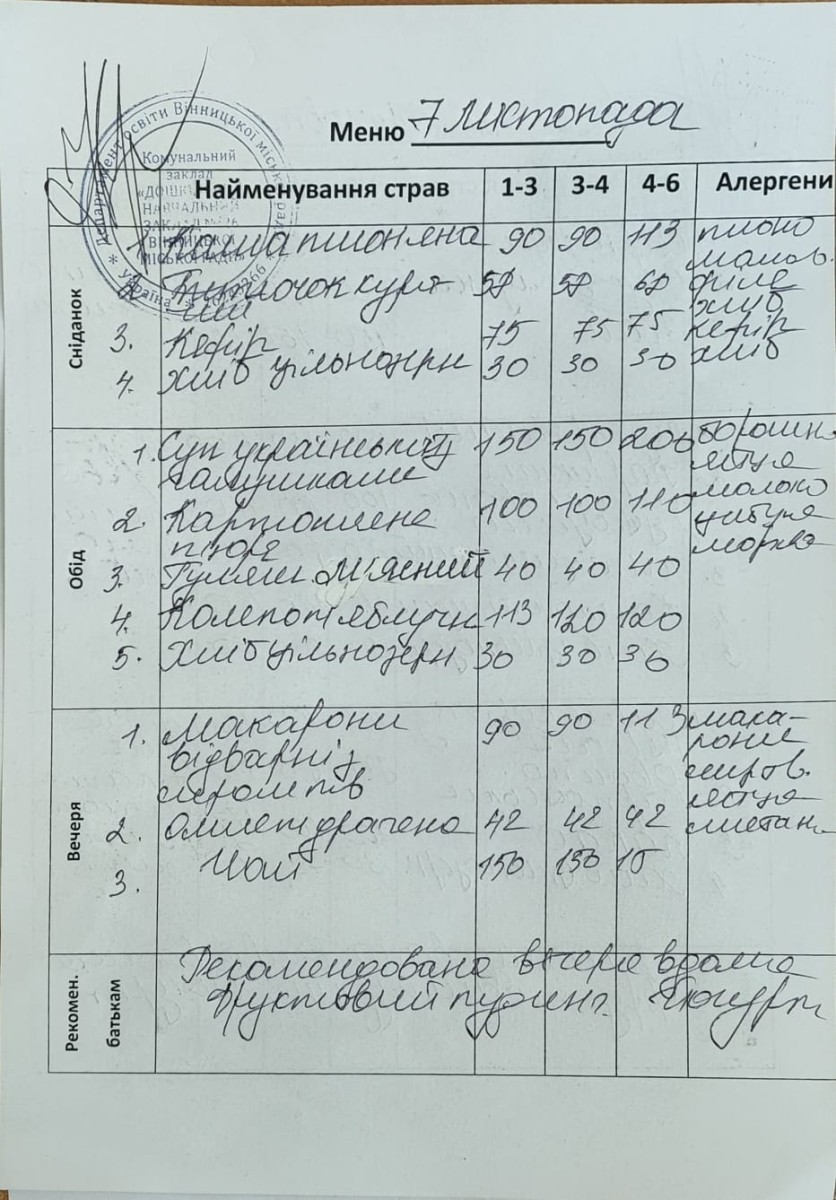 Меню 7 листопада
Департамент освіти Вінницької міської ради
Комунальний
заклад
НАВЧАЛЬНИЙ
ЗАКЛАД №26
ВІННИЦЬКОЇ
МІСЬКОЇ РАДИ»
Україна
Найменування страв 1-3 3-4 4-6 Алергени
Сніданок
1. Каша пшоняна 90 90 113 пшоно
молоч.
2. Биточок куря 50 50 60 філе
чий хліб
3. Кефір 75 75 75 кефір
4. Хліб цільнозерн 30 30 30 хліб
Обід
1. Суп український з 150 150 200 борошно
галушками яйця
молоко
2. Картопляне 100 100 110 цибуля
пюре морква
3. Гуляш м'ясний 40 40 40
4. Компот яблучн 113 120 120
5. Хліб цільнозерн 30 30 30
Вечеря
1. Макарони 90 90 113 мака-
відварні з рони
сиром тв сиров.
яйця
2. Омлет драчена 42 42 42 сметан.
3. Чай 150 150 15
Рекомен.
батькам
Рекомендована вечеря вдома
Фруктовий пудинг. Йогурт